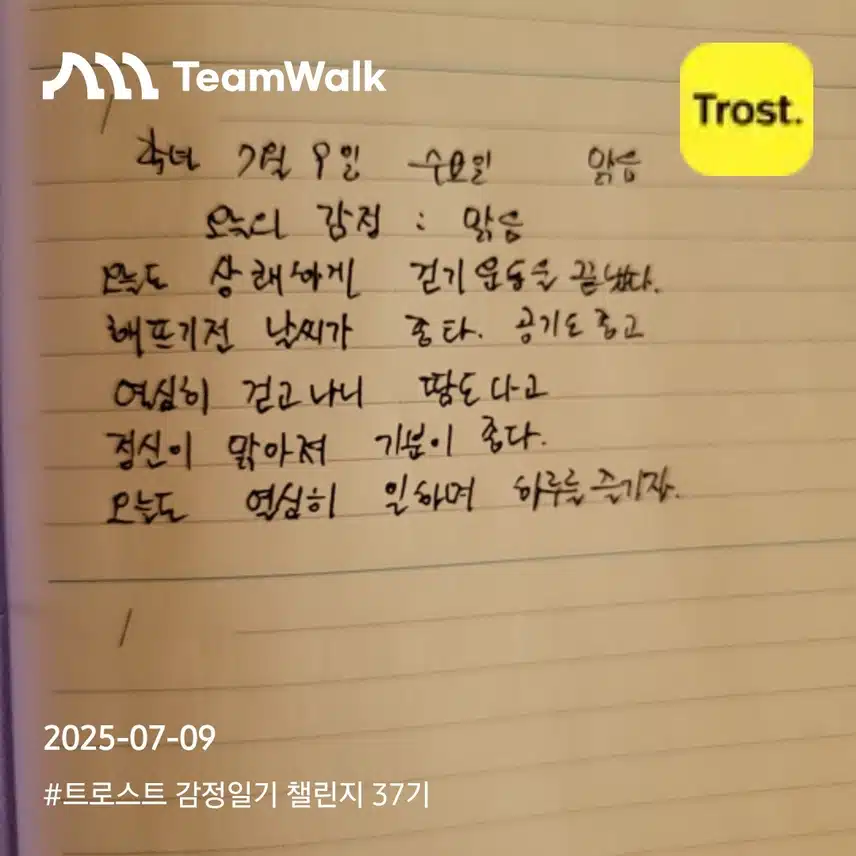 TeamWalk
Trost.
7월 9일 수요일 맑음
오늘의 감정 : 맑음
오늘도 상쾌하게 걷기운동을 끝냈다.
해뜨기전 날씨가 좋다. 공기도 좋고
열심히 걷고나니 땀도나고
정신이 맑아져 기분이 좋다.
오늘도 열심히 일하며 하루를 즐기자.
2025-07-09
#트로스트 감정일기 챌린지 37기